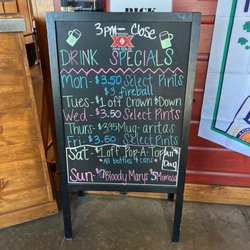 3pm-Close
XX
DRINK SPECIALS
Mon - $3.50 Select Pints
$3 fireball
Tues - $1 off Crown & Down
Wed - $3.50 Select Pints
Thurs - $3.95 Mug-aritas
Fri - $3.50 Select Pints
Sat - $1 off Pop-A-Top All Day
*All bottles & cans*
Sun - Bloody Marys $5 Mimosa